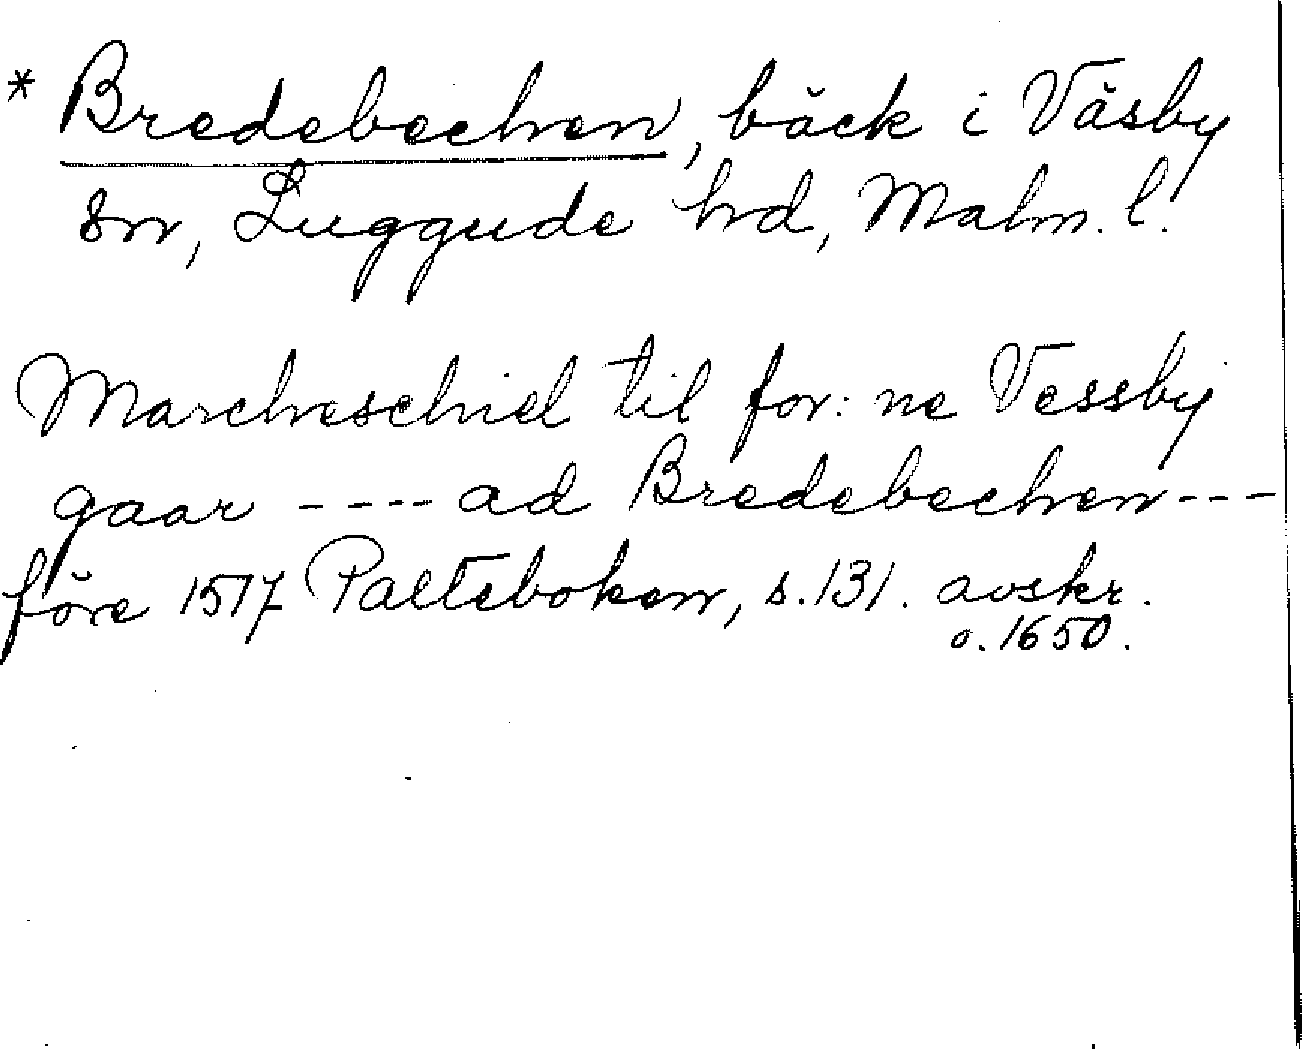 * Bredebechen, bäck i Väsby
sn, Luggude hd, Malm. l.
Marcheschiel til for: ne Vessby
gaar ---- ad Bredebechen---
före 1517 Palteboken, s.131. avskr.
o. 1650.